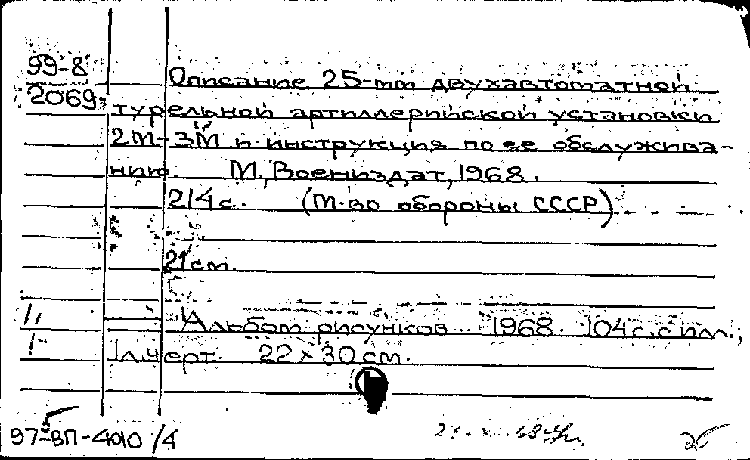 99-8
2069
Описание 25-mm двухавтоматной
турельной артиллерийской установки
2М-3М и инструкция по ее обслужива-
нию. М., Воениздат, 1968.
214с. (М-во обороны СССР)
21см.
Альбом рисунков 1968. 104с. с илл.,
1л.черт. 22х30см.
97-ВП-4010/4